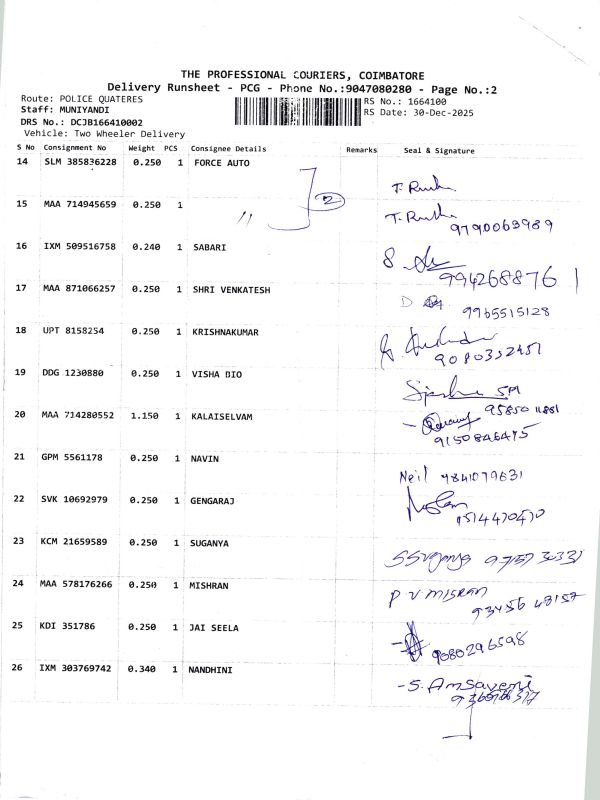 THE PROFESSIONAL COURIERS, COIMBATORE
Delivery Runsheet - PCG - Phone No.:9047080280 - Page No.:2
Route: POLICE QUATERES
RS No.: 1664100
Staff: MUNIYANDI
RS Date: 30-Dec-2025
DRS No.: DCJB166410002
Vehicle: Two Wheeler Delivery
S No Consignment No Weight PCS Consignee Details Remarks Seal & Signature
14 SLM 385836228 0.250 1 FORCE AUTO
15 MAA 714945659 0.250 1 " 2
9790063989
16 IXM 509516758 0.240 1 SABARI
994268876 1
17 MAA 871066257 0.250 1 SHRI VENKATESH
9965515128
18 UPT 8158254 0.250 1 KRISHNAKUMAR
9080352451
19 DDG 1230880 0.250 1 VISHA BIO
20 MAA 714280552 1.150 1 KALAISELVAM
9150846475
21 GPM 5561178 0.250 1 NAVIN
Neil 9841079631
22 SVK 10692979 0.250 1 GENGARAJ
9514470470
23 KCM 21659589 0.250 1 SUGANYA
S Suganya
24 MAA 578176266 0.250 1 MISHRAN
P V MISRAN
93456 48157
25 KDI 351786 0.250 1 JAI SEELA
9080296598
26 IXM 303769742 0.340 1 NANDHINI
- S. Amsaveni